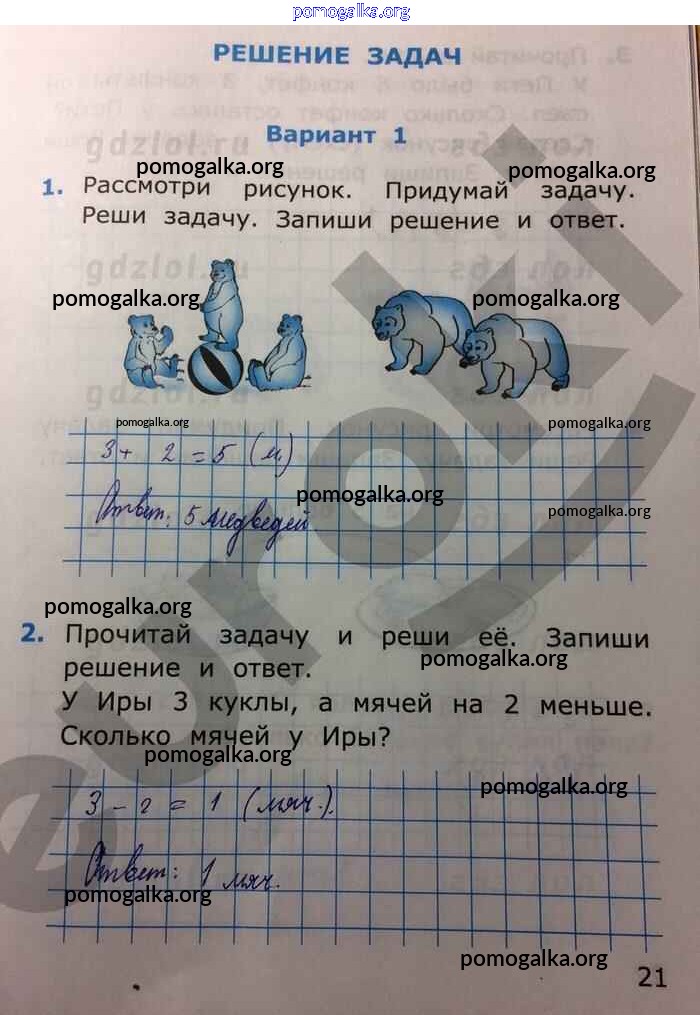 pomogalka.org
РЕШЕНИЕ ЗАДАЧ
Вариант 1
gdzlol.ru
pomogalka.org
pomogalka.org
1. Рассмотри рисунок. Придумай задачу.
Реши задачу. Запиши решение и ответ.
gdzlol.ru
pomogalka.org
pomogalka.org
pomogalka.org
pomogalka.org
3 + 2 = 5 (м)
pomogalka.org
Ответ: 5 медведей
pomogalka.org
pomogalka.org
2. Прочитай задачу и реши её. Запиши
решение и ответ.
pomogalka.org
У Иры 3 куклы, а мячей на 2 меньше.
Сколько мячей у Иры?
pomogalka.org
pomogalka.org
3 - 2 = 1 (мяч.).
Ответ: 1 мяч.
pomogalka.org
pomogalka.org
21
euroki